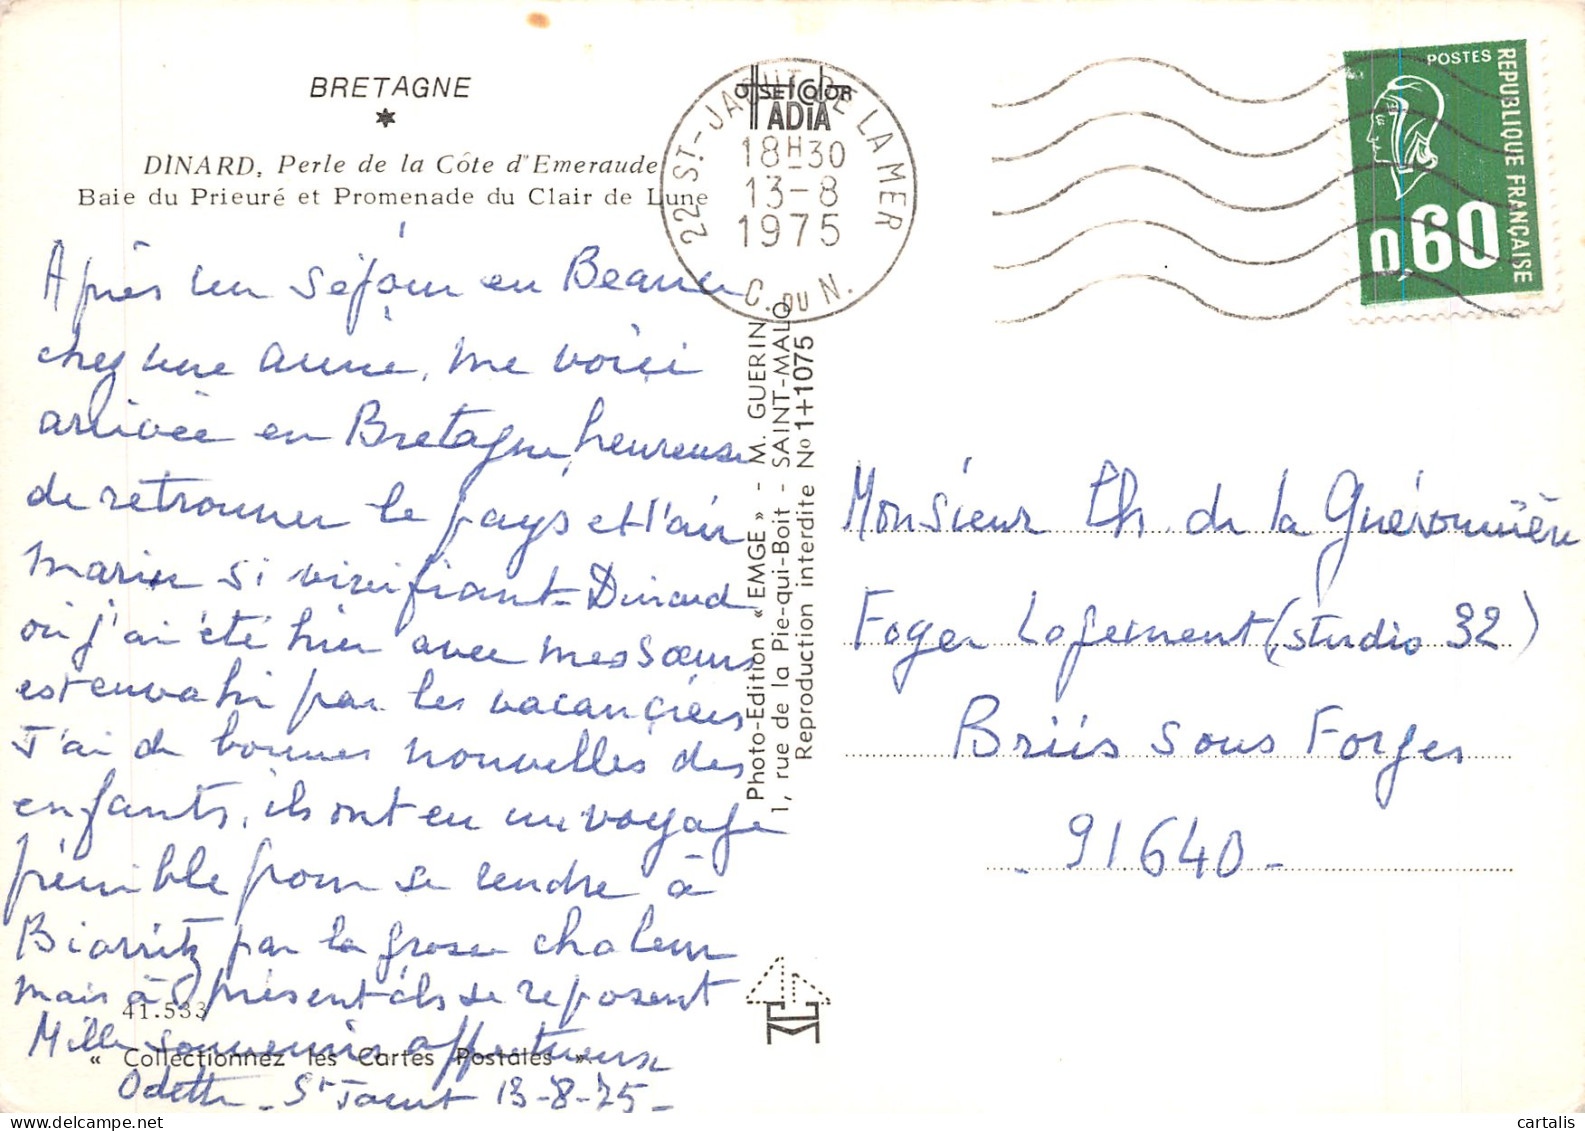 BRETAGNE
DINARD, Perle de la Côte d'Emeraude
Baie du Prieuré et Promenade du Clair de Lune
Après un séjour en Beauce
chez une amie, me voici
arrivée en Bretagne, heureuse
de retrouver le pays et l'air
marin si vivifiant - Dinard
où j'ai été hier avec mes sœurs
est envahi par les vacanciers
J'ai de bonnes nouvelles des
enfants, ils ont eu un voyage
pénible pour se rendre à
Biarritz par la grosse chaleur
mais à présent ils se reposent
Mille souvenirs affectueux
Odette - St Jacut 13-8-75-
41.533
« Collectionnez les Cartes Postales »
OFFSET COLOR
IADIA
22 ST.-JACUT DE LA MER
18H30
13-8
1975
C. DU N.
Photo-Edition « EMGE » - M. GUERIN
1, rue de la Pie-qui-Boit - SAINT-MALO
Reproduction interdite No 1+1075
POSTES
REPUBLIQUE FRANÇAISE
0,60
Monsieur Ch. de la Guéronnière
Foyer Logement (studio 32)
Briis sous Forges
- 91640 -
cartalis